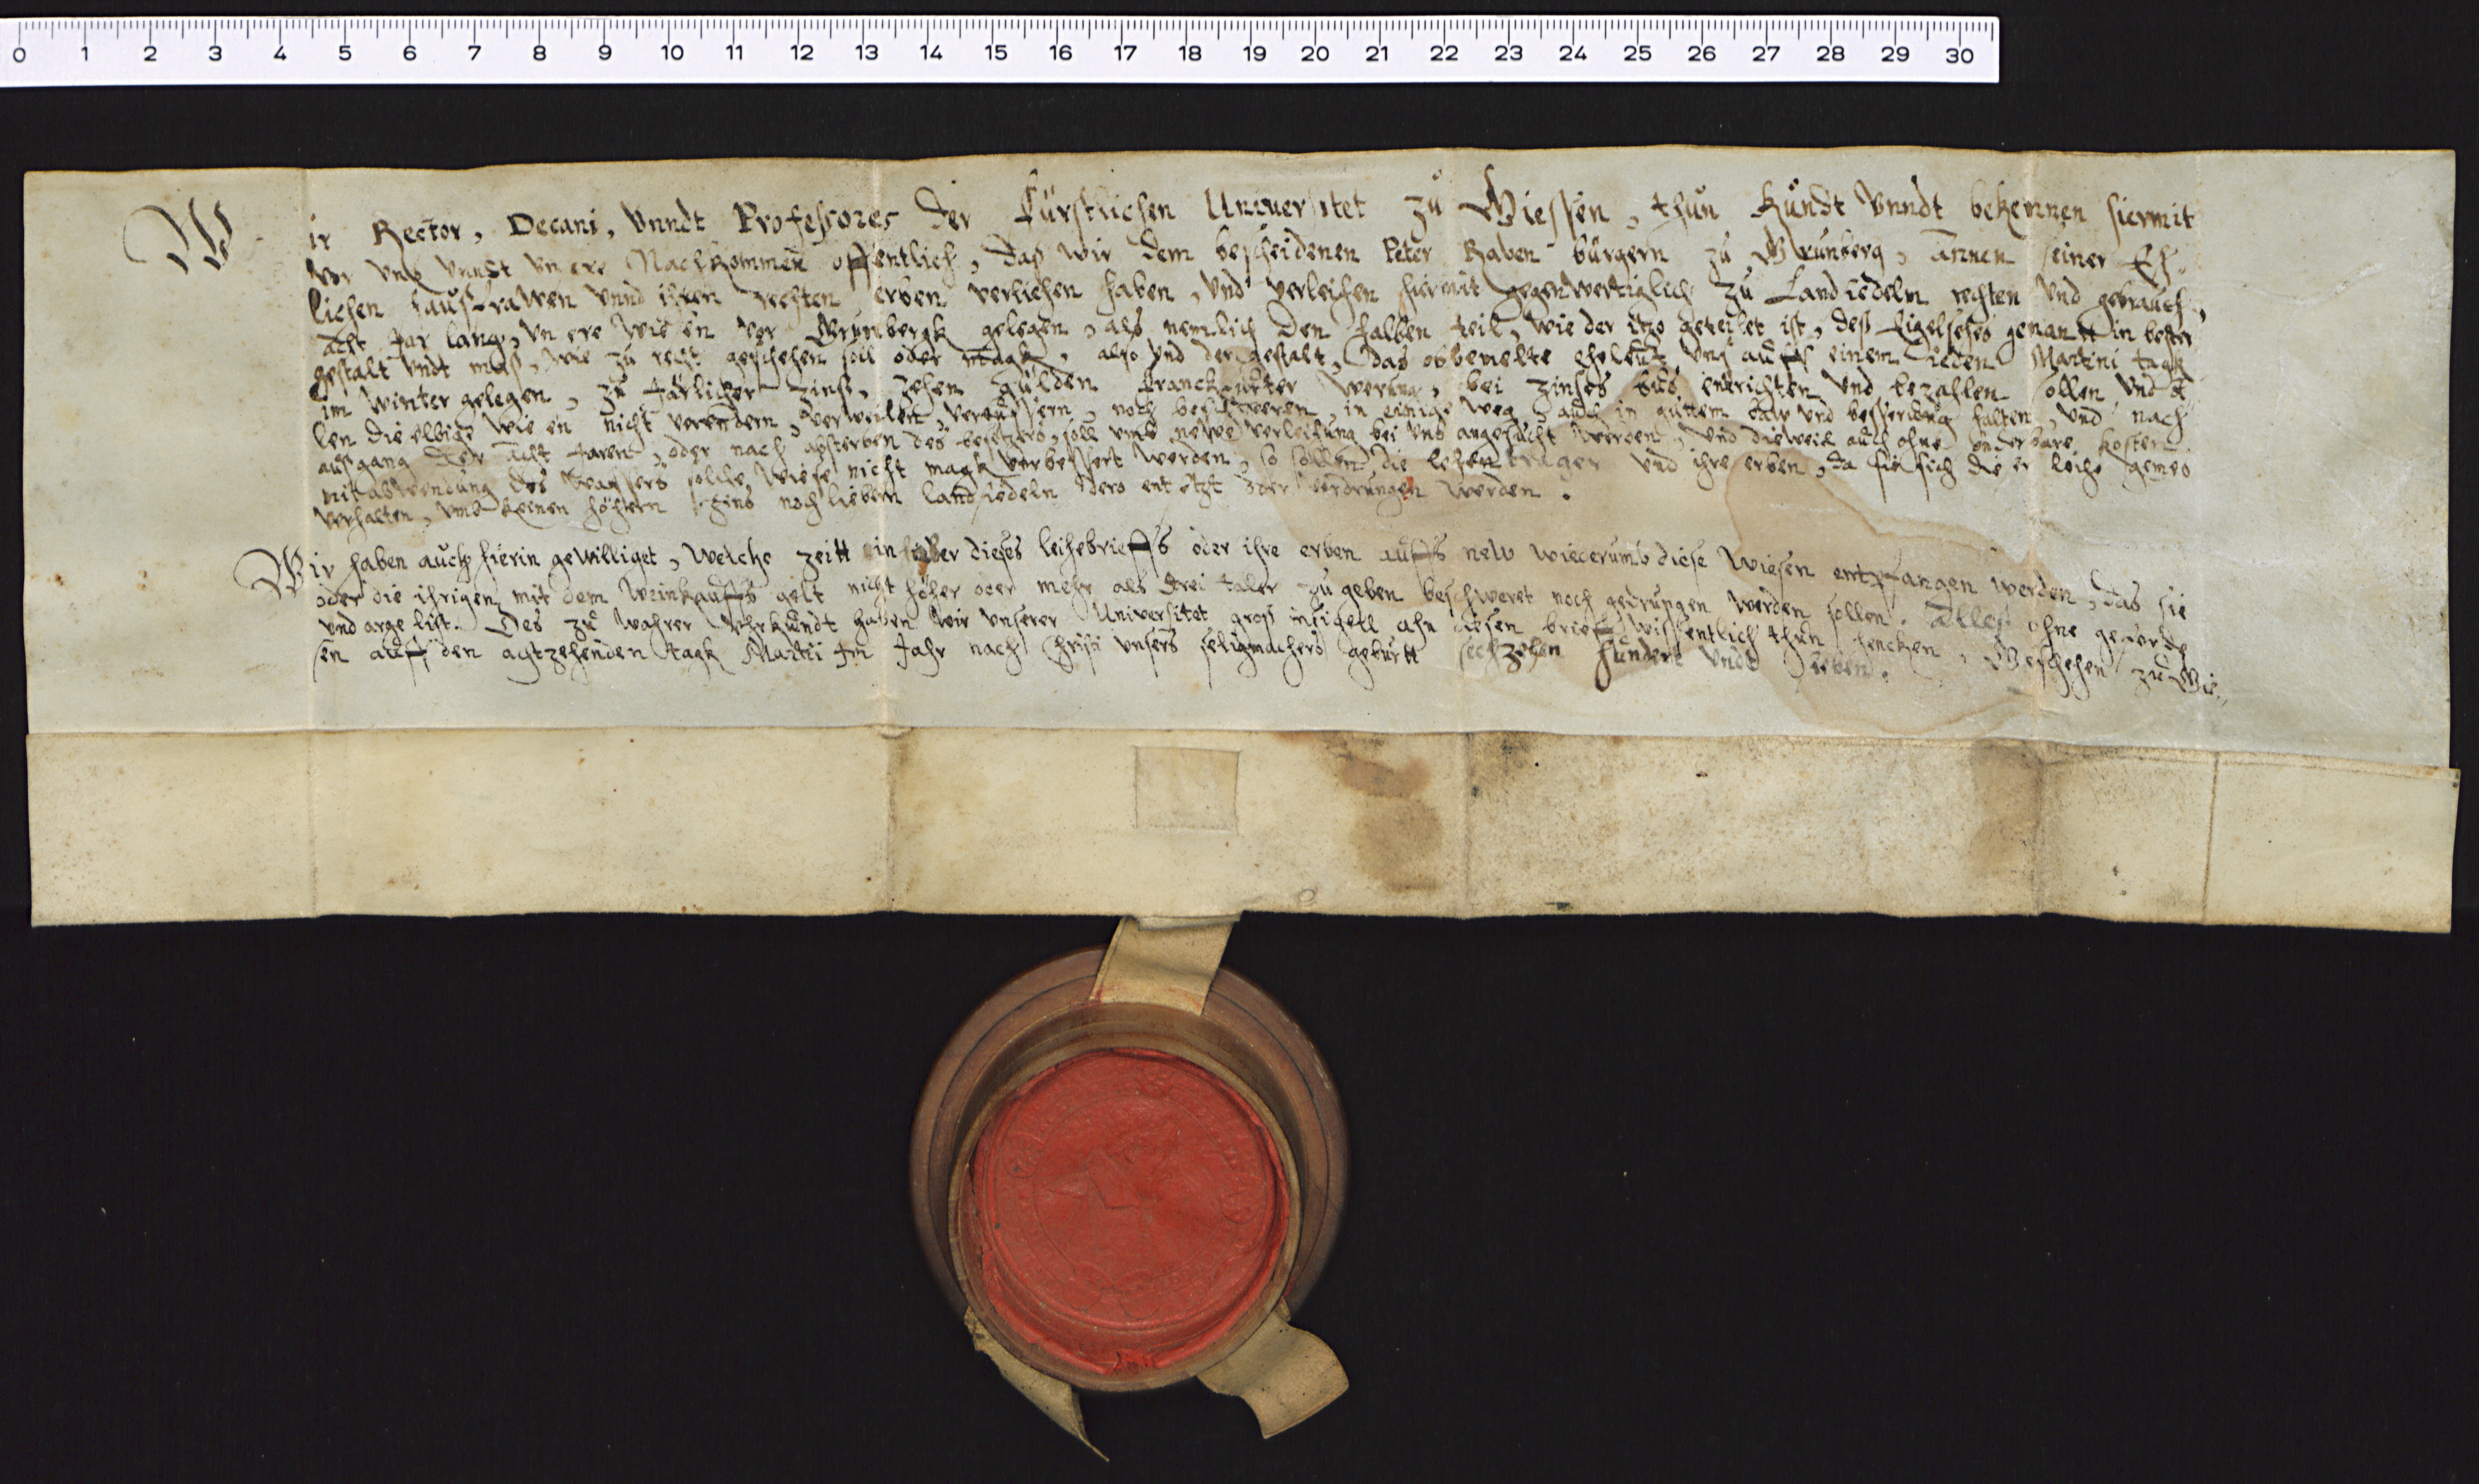 0 1 2 3 4 5 6 7 8 9 10 11 12 13 14 15 16 17 18 19 20 21 22 23 24 25 26 27 28 29 30
Wir Rector, Decani, Unndt Professores der Fürstlichen Universitet zu Giessen, thun kundt Unndt bekennen hiermit
vor uns Unndt unsere Nachkommen offentlich, daß wir dem bescheidenen Peter Raben bürgern zu Grünberg, Annen seiner Eh-
lichen haußfrawen Unnd ihren rechten erben verliehen haben, Und verleihen hiermit gegenwertiglich zu Landsiedeln rechten Und gebrauch,
acht Jar lang, unsere wiesen vor Grünbergk gelegen, als nemlich den halben teil, wie der itzo geteilet ist, deß genantt in bester
gestalt Undt maß, wie zu recht geschehen soll oder magk, also Und der gestalt, das obbemelte eheleut uns auff einem ieden Martini tagk
im winter gelegen, zu Jarlicher zinß, zehen gülden Franckfurter werung, bei zinses entrichten Und bezahlen sollen Und sol-
len dieselbige wiesen nicht verendern, vereussern, noch beschweren, in einige weg, auch in guttem baw Und besserung halten, Und nach
außgang der acht Jaren, oder nach absterben des besitzers, soll umb newe verleihung bei uns angesucht werden, Und dieweil auch ohne sonderbare kosten
mit abwendung des wassers solche wiese nicht magk verbessert werden, so sollen die lehenträger Und ihre erben, da sie sich dieser leihe gemes
verhalten, umb keinen höhern zins noch liebern landsiedeln dero entsetzt oder verdrungen werden.
Wir haben auch hierin gewilliget, welche zeitt inhaber dieses leihebrieffs oder ihre erben auffs new wiederumb diese wiesen entpfangen werden, das sie
oder die ihrigen mit dem weinkauffs gelt nicht höher oder mehr als drei taler zu geben beschweret noch gedrungen werden sollen. Alles ohne geferde
und arge list. Des zu wahrer Uhrkundt haben wir unserer Universitet groß insigell ahn diesen brieff wissentlich thun hencken, Geschehen zu Gies-
sen auff den achtzehenden tagk Martii Im Jahr nach Christi unsers seligmachers geburtt sechzehen hundert Undt sieben.